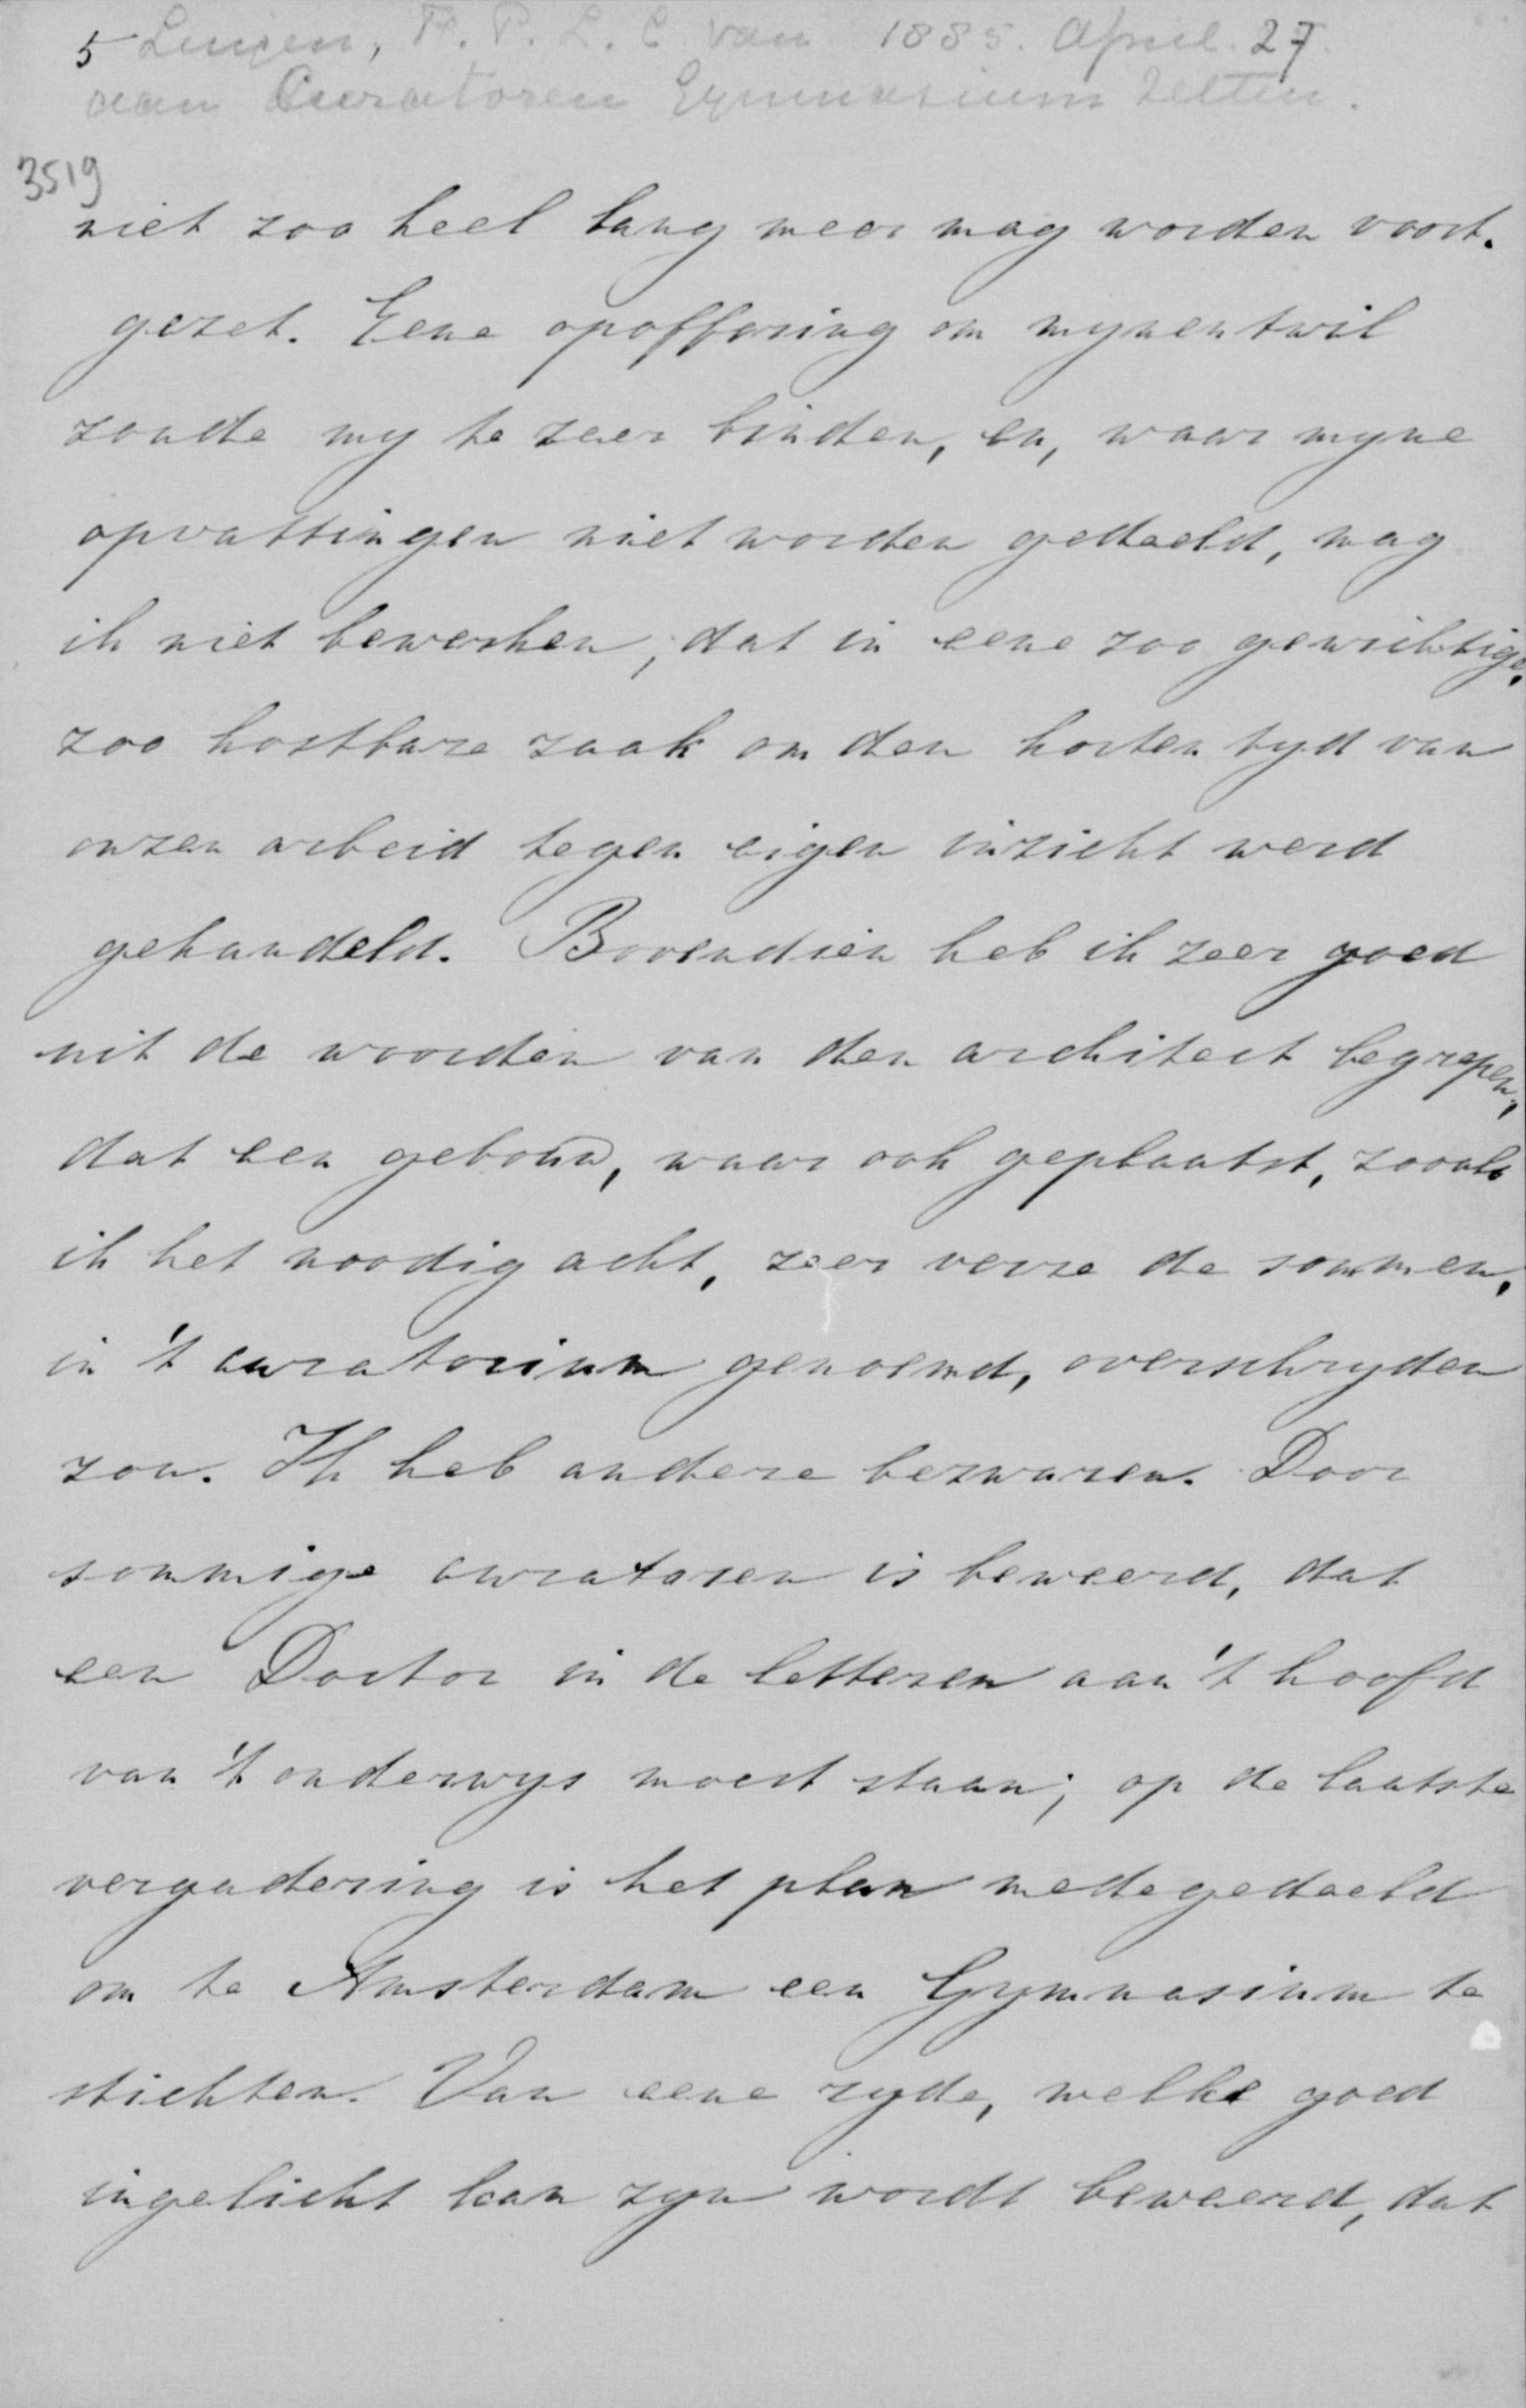 5 Lingen, F. P. L. C van 1885. April. 27.
aan Curatoren Gymnasium Zetten.
3519
niet zoo heel lang meer mag worden voort.
gezet. Eene opoffering om mynentwil
zoude my te zeer binden, en, waar myne
opvattingen niet worden gedeeld, mag
ik niet bewerken, dat in eene zoo gewichtige,
zoo kostbare zaak om den korten tyd van
onzen arbeid tegen eigen inzicht werd
gehandeld. Bovendien heb ik zeer goed
uit de woorden van den architect begrepen,
dat een gebouw, waar ook geplaatst, zooals
ik het noodig acht, zeer verre de sommen,
in 't curatorium genoemd, overschryden
zou. Ik heb andere bezwaren. Door
sommige curatoren is beweerd, dat
een Doctor in de letteren aan 't hoofd
van 't onderwys moest staan; op de laatste
vergadering is het plan medegedeeld
om te Amsterdam een Gymnasium te
stichten. Van eene zyde, welke goed
ingelicht kan zyn wordt beweerd, dat